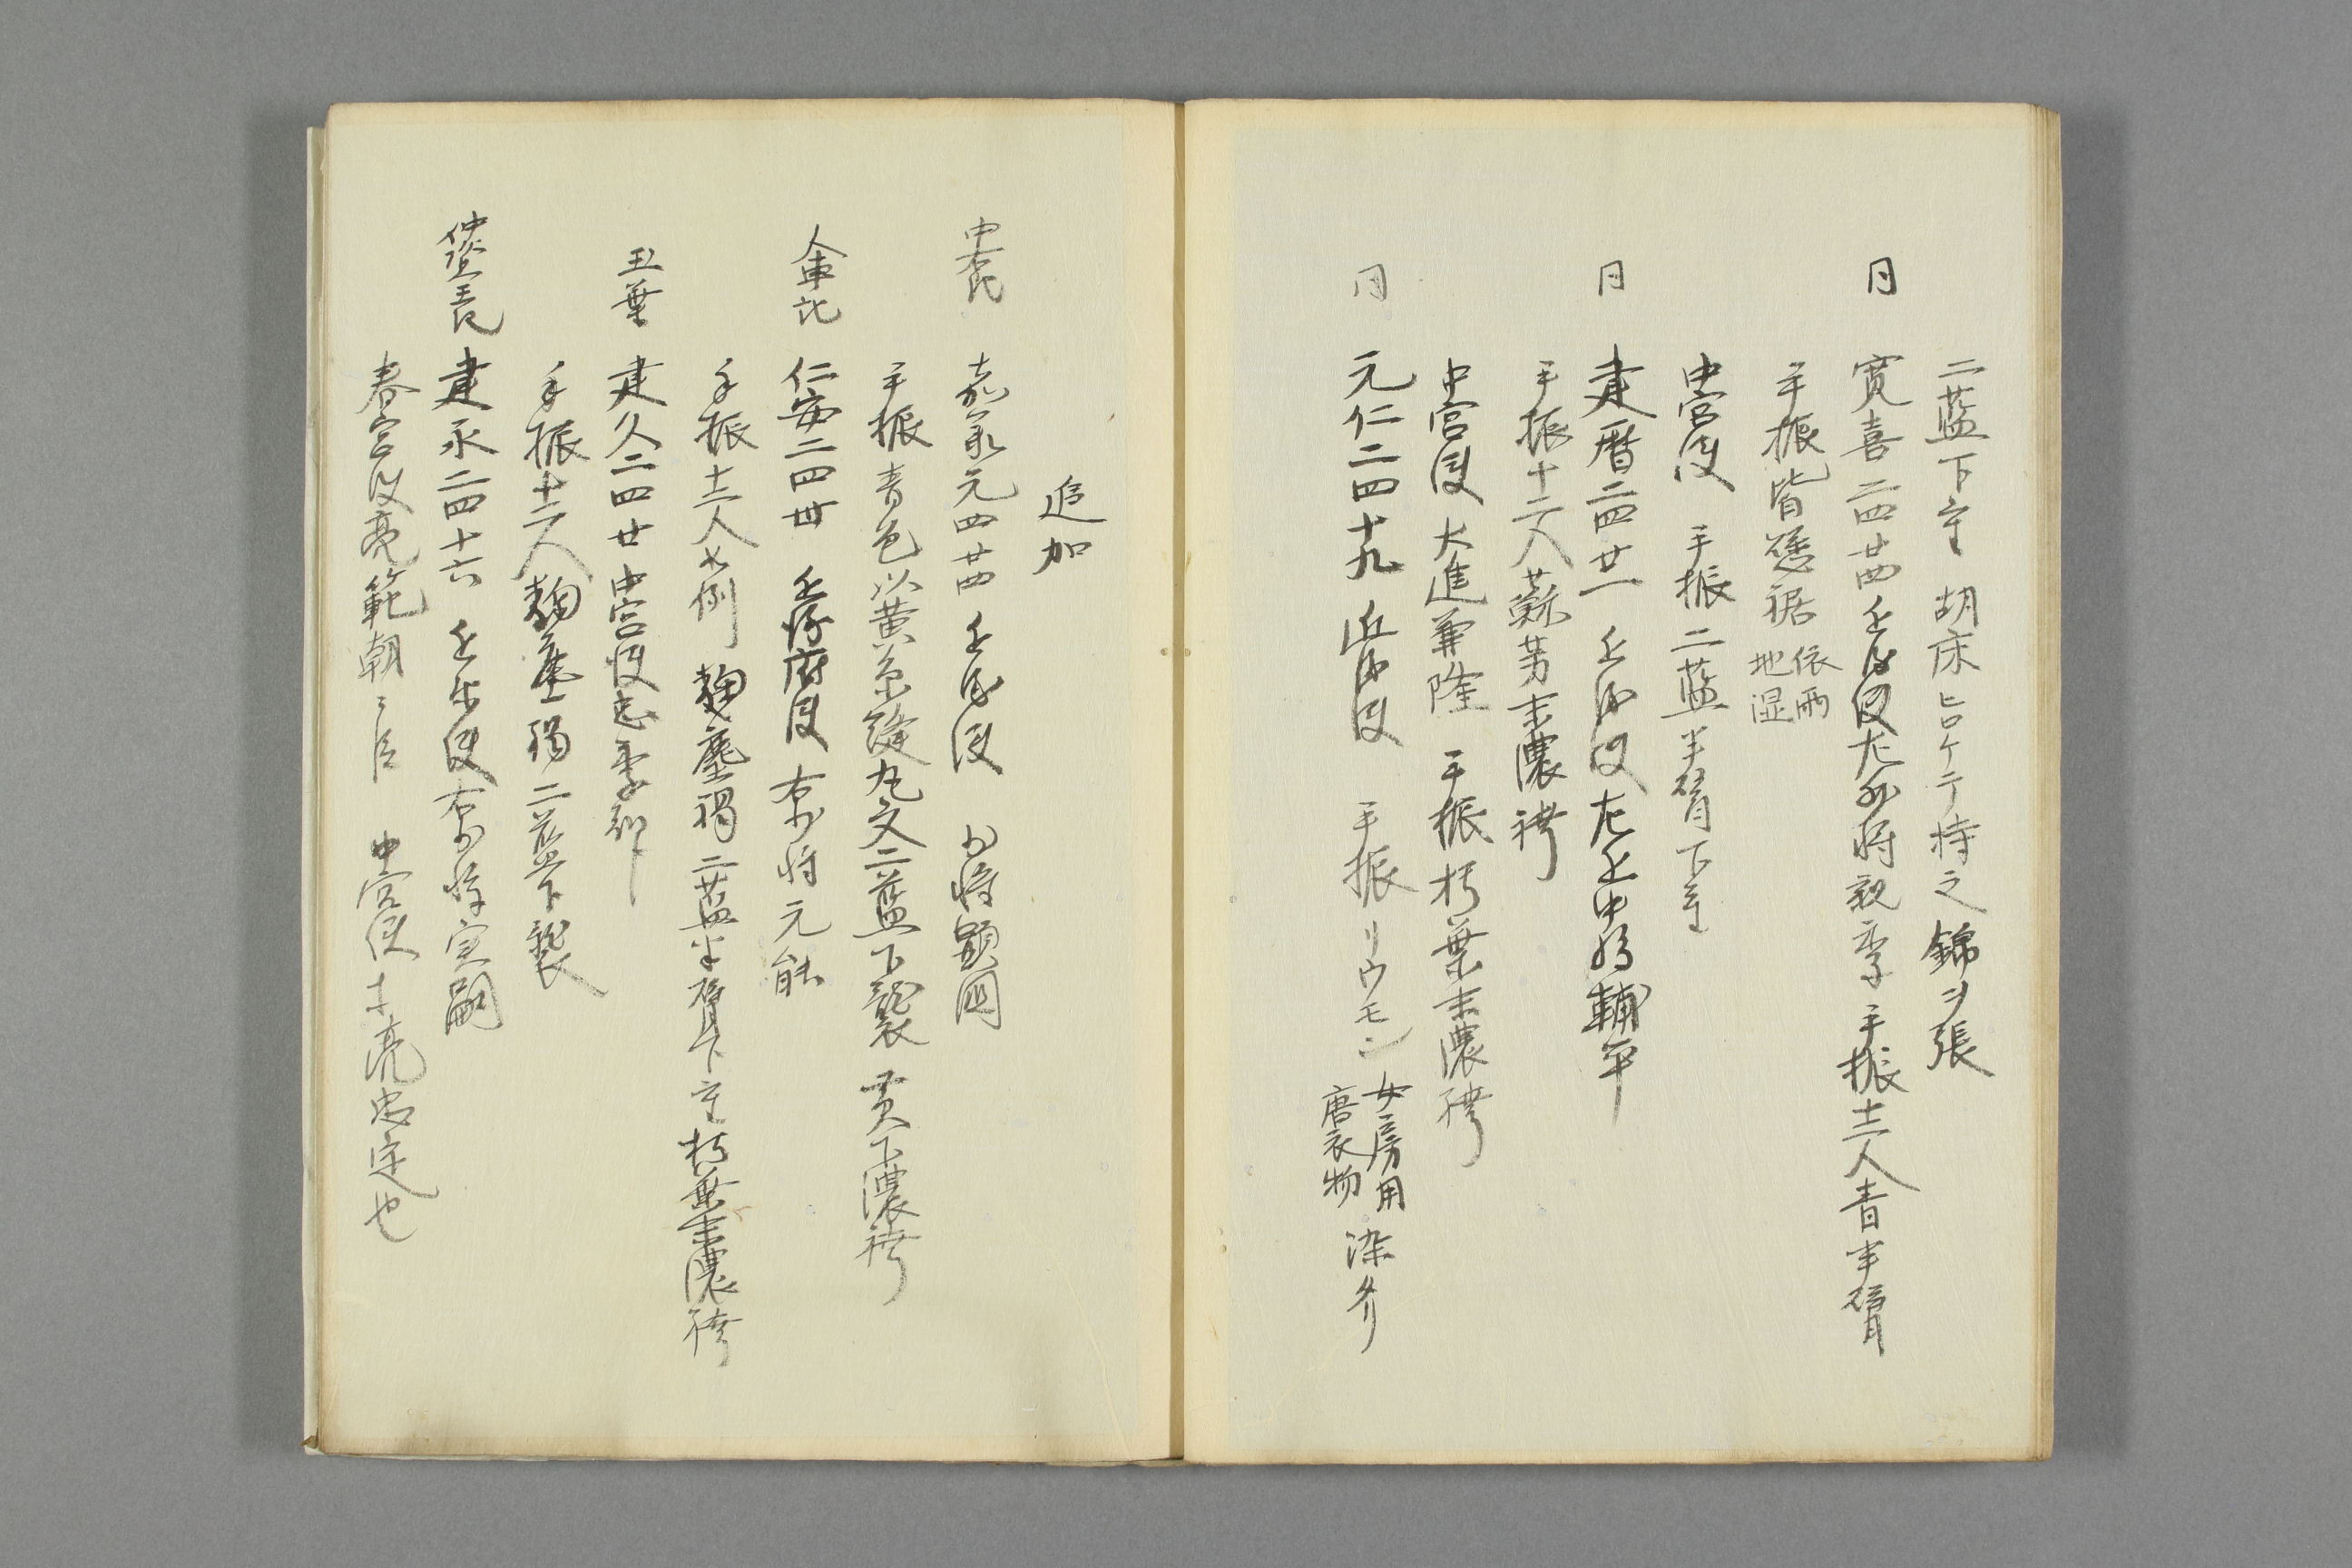 二藍下重 胡床ヒロケテ持之錦ヲ張
同 寛喜二四廿四近衛使左少将親季手振十二人青半臂
手振皆懸裾 依雨地湿
中宮使 手振二藍半臂下重
同 建暦二四廿一 近衛使左近中将輔平
手振十二人蘇芳末濃袴
中宮使大進兼隆 手振朽葉末濃袴
同 元仁二四十九 近衛使 手振リウモン 女房用唐衣物 染分
追加
嘉承元四廿四 近衛使 少将顕国
手振青色以黄糸縫丸文二藍下襲 黄下濃袴
仁安二四卅 近衛府使 右少将元能
手振十二人如例 麹塵褐二藍半臂下重朽葉末濃袴
玉葉 建久二四廿中宮使亮季卿
手振十二人麹塵褐二藍下襲
建永二四十六 近衛使右少将実嗣
春宮使亮範朝々臣 中宮使亮忠定也